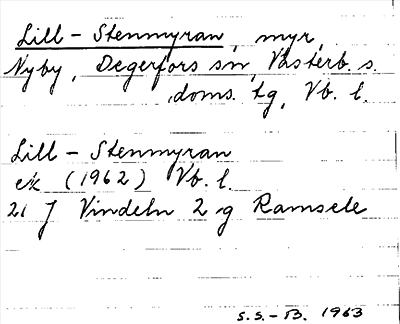 Lill - Stenmyran, myr,
Nyby, Degerfors sn, Västerb. s.
doms. tg, Vb. l.
Lill - Stenmyran
ek (1962) Vb. l.
21 J Vindeln 2 g Ramsele
S.S.-B. 1963